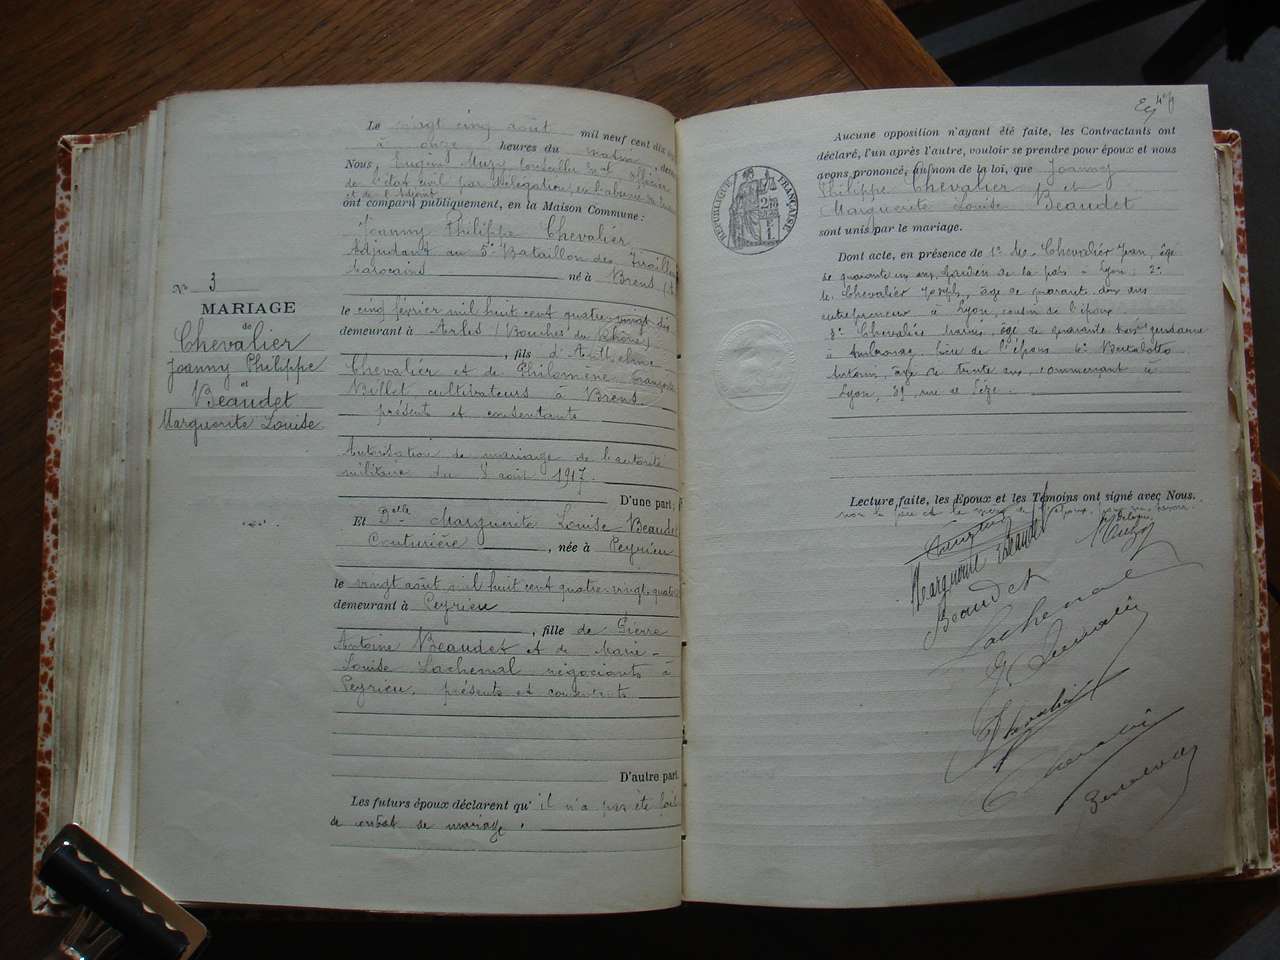 N° 3
MARIAGE
de
Chevalier
Joanny Philippe
et
Beaudet
Marguerite Louise
Le vingt cinq août mil neuf cent dix sept
à onze heures du matin, devant
Nous, Eugène Muzy conseiller m^al officier
de l'état civil par délégation, en l'absence du
et de l'adjoint
ont comparu publiquement, en la Maison Commune :
Joanny Philippe Chevalier
Adjudant au 5e Bataillon des Tirailleurs
Marocains né à Brens
le cinq février mil huit cent quatre-vingt dix
demeurant à Arles (Bouches du Rhône)
, fils d'Anthelme
Chevalier et de Philomène Françoise
Billet cultivateurs à Brens
présents et consentants
Autorisation de mariage de l'autorité
militaire du 8 août 1917.
D'une part,
Et D^elle Marguerite Louise Beaudet
Couturière, née à Peyrieu
le vingt août mil huit cent quatre-vingt-quatre
demeurant à Peyrieu
, fille de Pierre
Antoine Beaudet et de Marie-
Louise Lachenal négociants à
Peyrieu, présents et consentants
D'autre part
Les futurs époux déclarent qu'il n'a pas été fait
de contrat de mariage.
Aucune opposition n'ayant été faite, les Contractants ont
déclaré, l'un après l'autre, vouloir se prendre pour époux et nous
avons prononcé, au nom de la loi, que Joanny
Philippe Chevalier et
Marguerite Louise Beaudet
sont unis par le mariage.
RÉPUBLIQUE FRANÇAISE
Dont acte, en présence de 1° de Chevalier Jean, âgé
de quarante un ans, gardien de la paix à Lyon; 2°
de Chevalier Joseph, âgé de quarante dix ans
entrepreneur à Lyon, cousin de l'époux
3° Chevalier âgé de quarante trois gendarme
à Ambronay frère de l'époux 4° Bertalotto
Antonin, âgé de trente ans commerçant à
Lyon, 89 rue de Sèze.
Lecture faite, les Epoux et les Témoins ont signé avec Nous.
non le père et la mère de l'époux, pour ne savoir.
Marguerite Beaudet
Beaudet
Lachenal
Chevalier
Chevalier